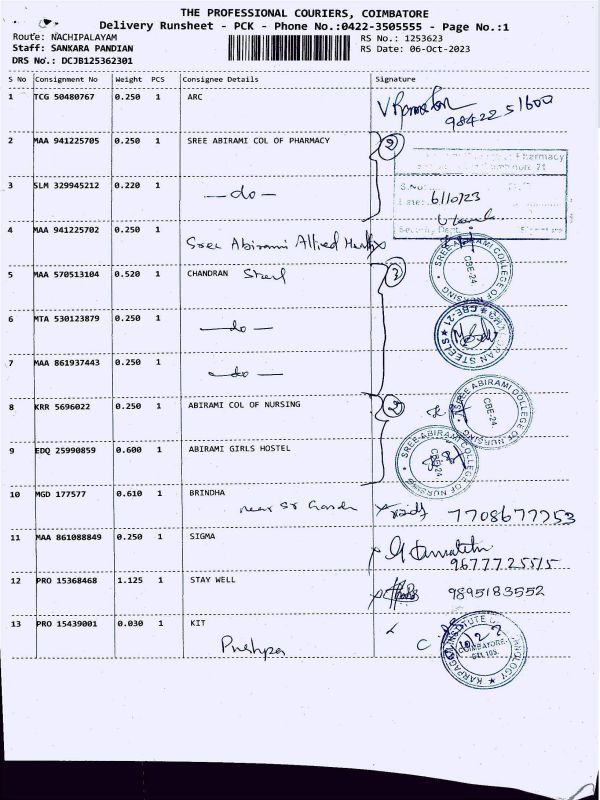 THE PROFESSIONAL COURIERS, COIMBATORE
Delivery Runsheet - PCK - Phone No.:0422-3505555 - Page No.:1
Route: NACHIPALAYAM
RS No.: 1253623
Staff: SANKARA PANDIAN
RS Date: 06-Oct-2023
DRS No.: DCJB125362301
S No Consignment No Weight PCS Consignee Details Signature
1 TCG 50480767 0.250 1 ARC
98422 51600
2 MAA 941225705 0.250 1 SREE ABIRAMI COL OF PHARMACY 2
Pharmacy
3 SLM 329945212 0.220 1 — do —
S.No:
Date: 6/10/23
Security Dept. Signature
4 MAA 941225702 0.250 1 Sree Abirami Allied
SREE ABIRAMI COLLEGE OF NURSING CBE-24
5 MAA 570513104 0.520 1 CHANDRAN Steel 3
6 MTA 530123879 0.250 1 — do —
STEELS CBE-21
7 MAA 861937443 0.250 1 — do —
8 KRR 5696022 0.250 1 ABIRAMI COL OF NURSING 2
SREE ABIRAMI COLLEGE OF NURSING CBE-24
9 EDQ 25990859 0.600 1 ABIRAMI GIRLS HOSTEL
SREE ABIRAMI COLLEGE OF NURSING CBE-24
10 MGD 177577 0.610 1 BRINDHA
near
7708677253
11 MAA 861088849 0.250 1 SIGMA
9677725515
12 PRO 15368468 1.125 1 STAY WELL
9895183552
13 PRO 15439001 0.030 1 KIT
Pushpa
INSTITUTE OF TECHNOLOGY COIMBATORE